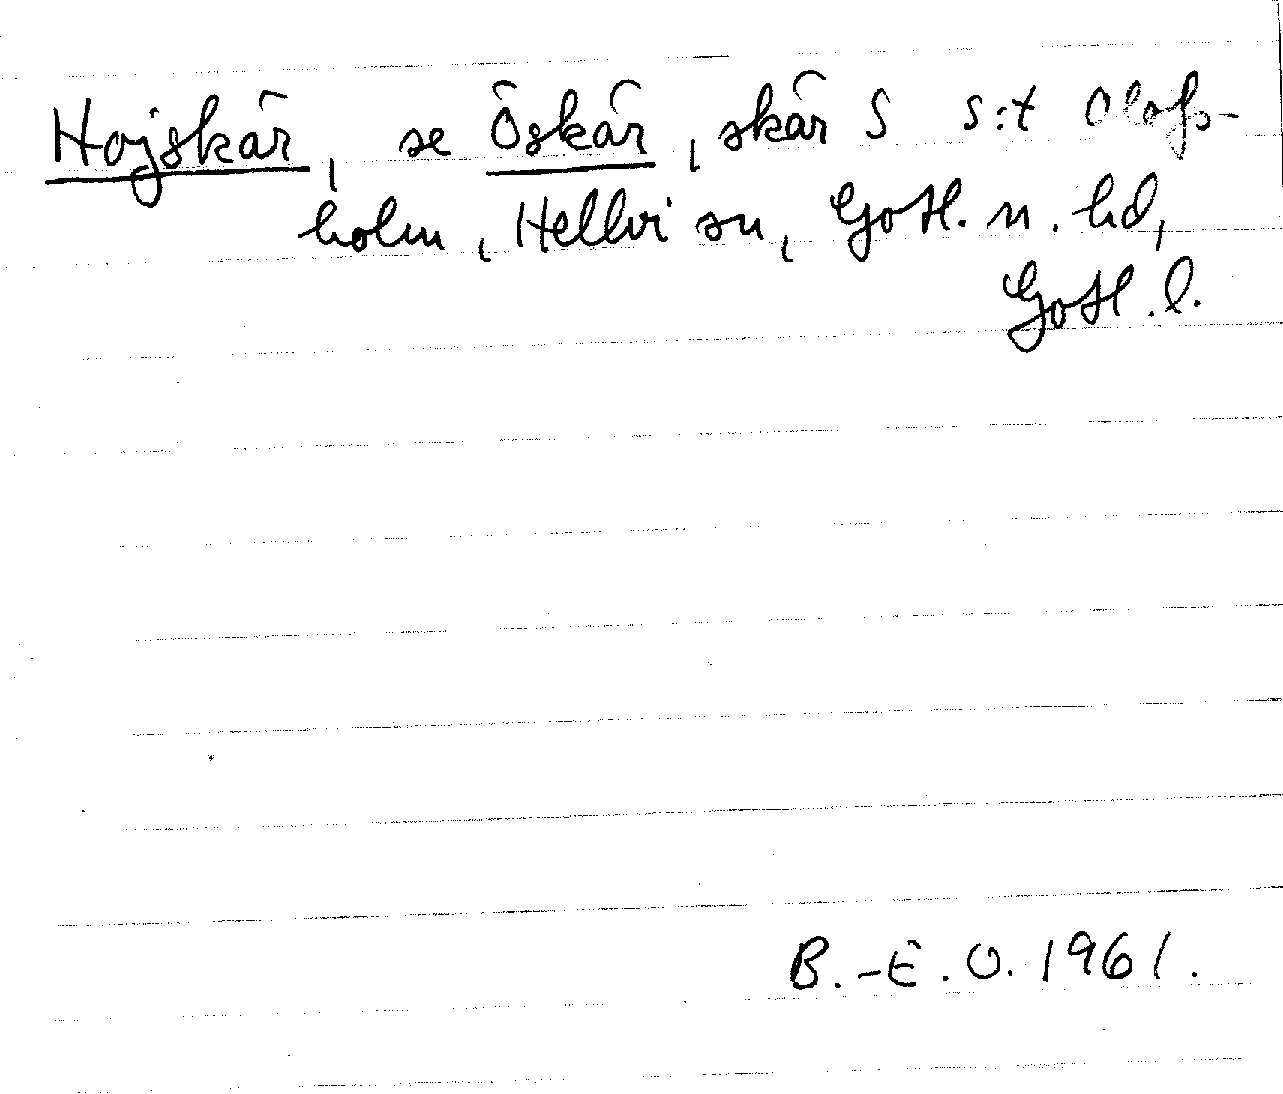 Hojskär, se Öskär, skär S S:t Olofs-
holm, Hellvi sn, Gotl. n. hd,
Gotl. l.
B.-E. O. 1961.